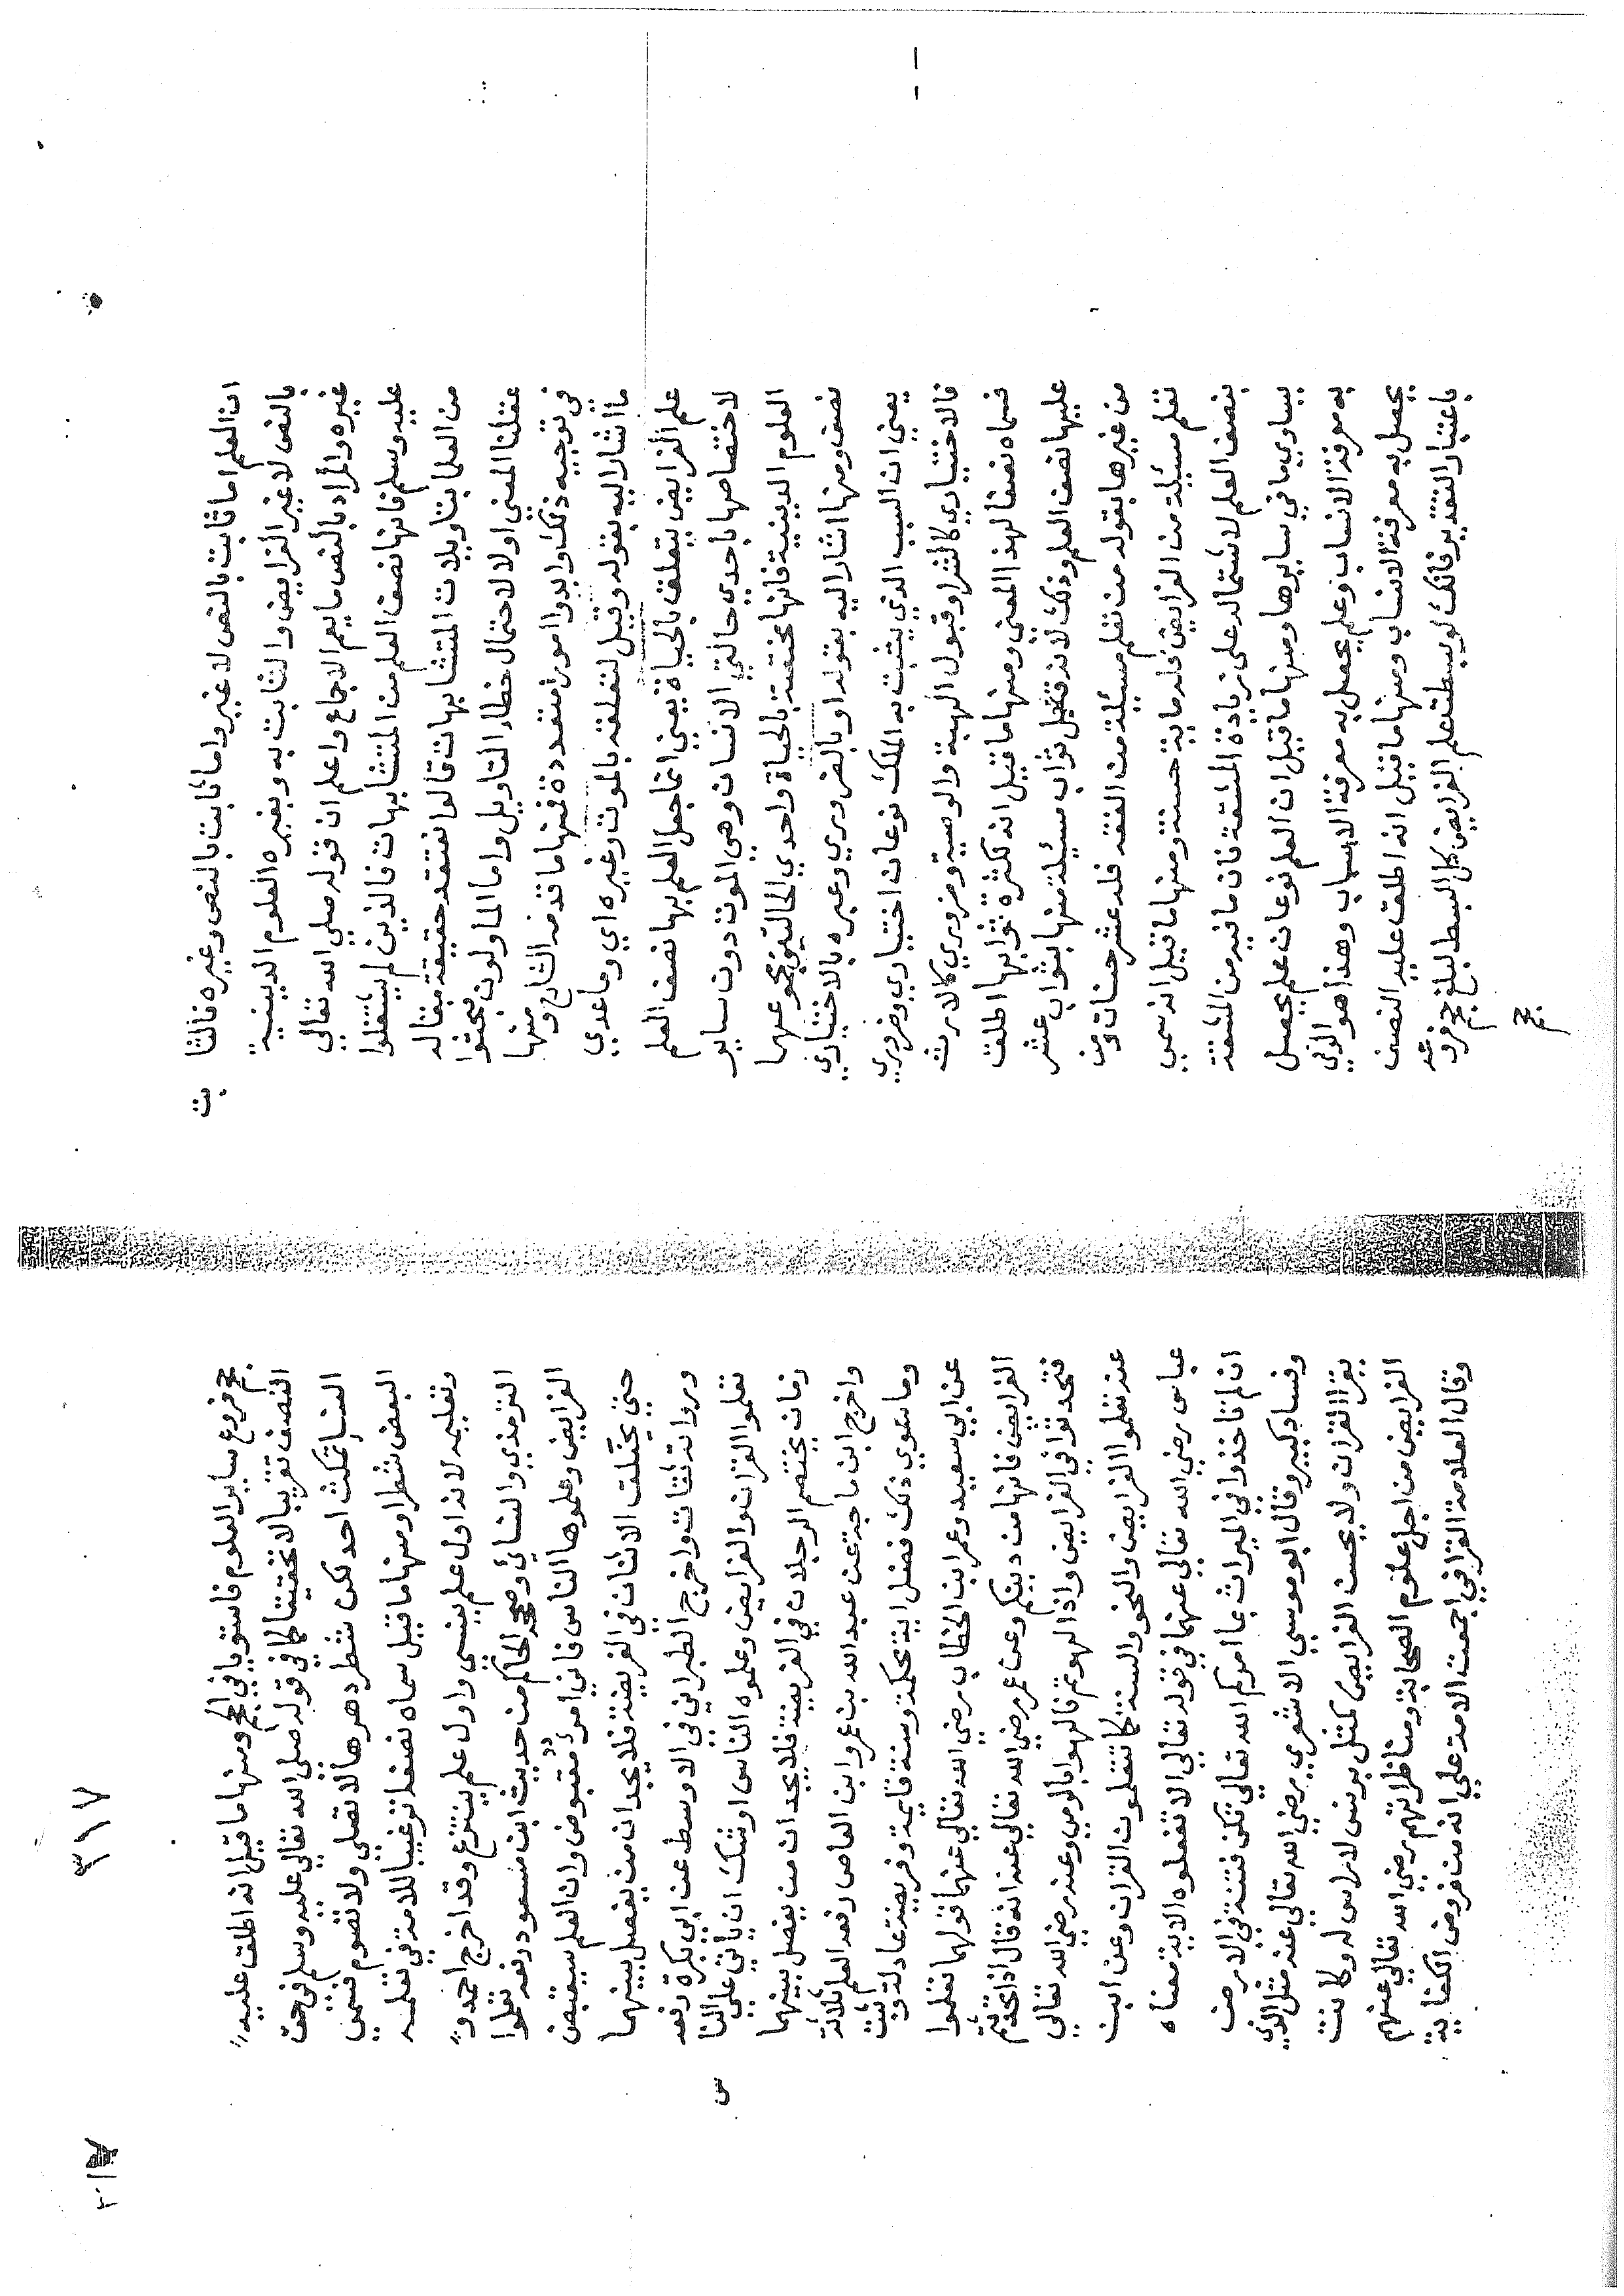 ان العلم اما ثابت بالنص لا غير واما ثابت بالنص وغيره فالثا بت
بالنص لا غير الفرايض والثابت به وبغيره العلوم الدينية
غيره والمراد بالنص ما يعم الاجماع واعلم ان قوله صلي الله تعالي
عليه وسلم فانها نصف العلم من المتشابهات فالذين لم يشتغلوا
من العلما بتاويلات المتشابهات قالوا نعتقد حقيقة مقاله
عقلنا المعني اولا لاحتمال خطاء التاويل واما الماولون بحثوا
في توجيه ذلك وابدوا امورا متعددة فمنها ما قدمه الشارح ومنها
ما اشار اليه بقوله وقيل لتعلقه بالموت وغيره اي وما عدي
علم الفرايض يتعلق بالحياة يعني انما جعل العلم بها نصف العلم
لاختصاصها باحدي حالتي الانسان وهي الموت دون ساير
العلوم الدينية فانها مختصة بالحياة واحدي الحالتين مجموعهما
نصف ومنها اشار اليه بقوله او بالضروري وغيره بالاختياري
يعني ان السبب الذي يثبت به الملك نوعان اختياري وضروري
فالاختياري كالشرا وقبول الهبة والوصية وضروري كالارث
فسماه نصفا لهذا المعني ومنها ما قيل انه لكثرة ثوابها اطلق
عليها نصف العلم وذلك لانه قيل ثواب مسئلة منها بثواب عشر
من غيرها بقوله من تعلم مسئلة من الفقه فله عشر حسنات ومن
تعلم مسئلة من الفرايض فله ماية حسنة ومنها ما قيل انه سمي
بنصف العلم لاشتماله علي زيادة المشقة فان ما فيه من المشقة
يساوي ما في سايرها ومنها ما قيل ان العلم نوعان علم يحصل
به معرفة الانساب وعلم يحصل به معرفة الاسباب وهذا هو الذي
يحصل به معرفة الانساب ومنها ما قيل انه اطلق عليه النصف
باعتبار التقدير فانك لو بسطت علم الفرايض كل البسط لبلغ حجم فروعه
حجم
٣١٧
حجم فروع ساير العلوم فاستويا في الحجم ومنها ما قيل انه اطلق عليه
النصف تقريبا لا تحقيقا كما في قوله صلي الله تعالي عليه وسلم في حق
النسا تمكث احدكن شطر دهرها لا تصلي ولا تصوم فسمي
البعض شطرا ومنها ما قيل سماه نصفا ترغيبا للامة في تعلمه
وتعليمه لانه اول علم ينسي واول علم ينتزع وقد اخرج احمد و
الترمذي والنسائي وصححه الحاكم من حديث ابن مسعود رفعه تعلموا
الفرايض وعلموها الناس فاني امرؤ مقبوض وان العلم سيقبض
حتي يختلف الاثنان في الفريضة فلا يجدان من يفصل بينهما
ورواته ثقات واخرج الطبراني في الاوسط عن ابي بكرة رفعه
تعلموا القران والفرايض وعلموه الناس اوشك ان ياتي علي النا س
زمان يختصم الرجلان في الفريضة فلا يجدان من يفصل بينهما
واخرج ابن ماجة عن عبد الله بن عمرو ابن العاص رفعه العلم ثلاثة
وما سوي ذلك فضل اية محكمة وسنة قايمة وفريضة عادلة
عن ابي سعيد وعمر ابن الخطاب رضي الله تعالي عنهما قولهما تعلموا
الفرايض فانها من دينكم وعن عمر رضي الله تعالي عنه انه قال اذا تحدثتم
فتحدثوا في الفرايض واذا لهوتم فالهوا بالرمي وعنه رضي الله تعالي
عنه تعلموا الفرايض والنحو والسنة كما تتعلمون القران وعن ابن
عباس رضي الله تعالي عنهما في قوله تعالي الا تفعلوه الاية معناه
ان لم تاخذوا في الميراث بما امركم الله تعالي تكن فتنة في الارض
وفساد كبير وقال ابو موسي الاشعري رضي الله تعالي عنه مثل الذي
يقرا القران ولا يحسن الفرايض كمثل برنس لا راس له وكانت
الفرايض من اجل علوم الصحابة ومناظراتهم رضي الله تعالي عنهم
وقال العلامة القرافي اجمعت الامة علي انه من فروض الكفاية